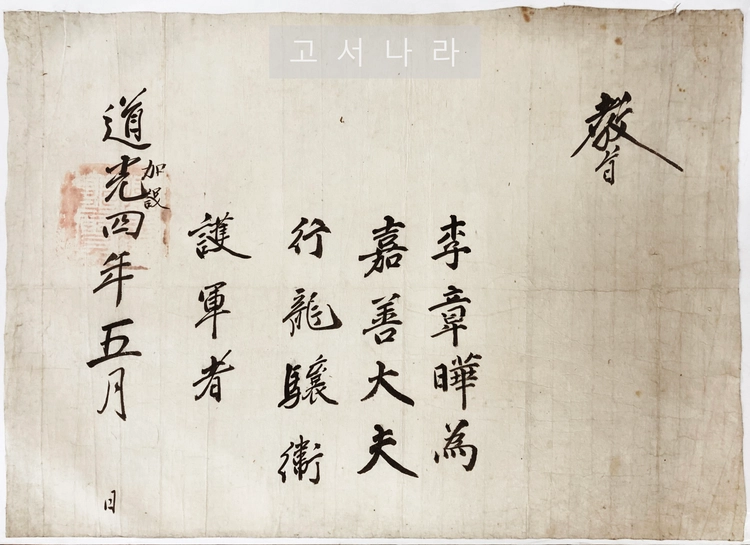 고서나라
教旨
李章曄為
嘉善大夫
行龍驤衛
護軍者
道光四年五月 日
加設